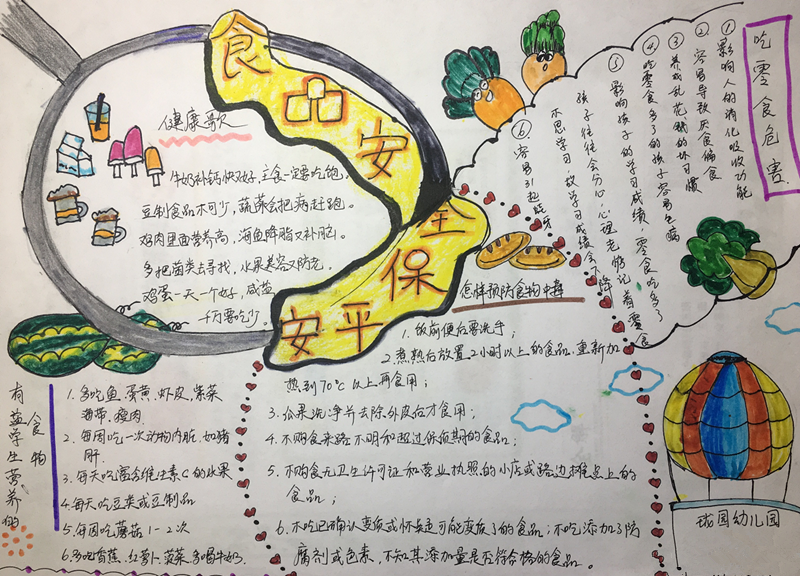 食品安全保平安
健康歌
牛奶补钙快又好，主食一定要吃饱。
豆制食品不可少，蔬菜会把病赶跑。
鸡肉里面营养高，海鱼降脂又补脑。
多把菌类去寻找，水果美容又防老。
鸡蛋一天一个好，咸盐
千万要吃少。
吃零食危害
①影响人的消化吸收功能
②容易导致厌食偏食
③养成乱花钱的坏习惯
④吃零食多了的孩子容易
⑤影响孩子的学习成绩，零食吃多了
孩子往往会分心，心理老惦记着零食
不思学习，故学习成绩会下降
⑥容易引起蛀牙
怎样预防食物中毒
1.饭前便后要洗手；
2.煮熟后放置2小时以上的食品，重新加
热到70℃以上再食用；
3.瓜果洗净并去除外皮后才食用；
4.不购食来路不明和超过保质期的食品；
5.不购食无卫生许可证和营业执照的小店或路边摊点上的
食品；
6.不吃已确认变质或怀疑可能变质了的食品；不吃添加了防
腐剂或色素，不知其添加量是否符合格的食品。
有益学生营养的
食物
1.多吃鱼、蛋黄、虾皮、紫菜
海带、瘦肉
2.每周吃一次动物内脏，如猪
肝.
3.每天吃富含维生素C的水果
4.每天吃豆类或豆制品
5.每周吃蘑菇1-2次
6.多吃香蕉、红萝卜、菠菜、多喝牛奶.
球园幼儿园